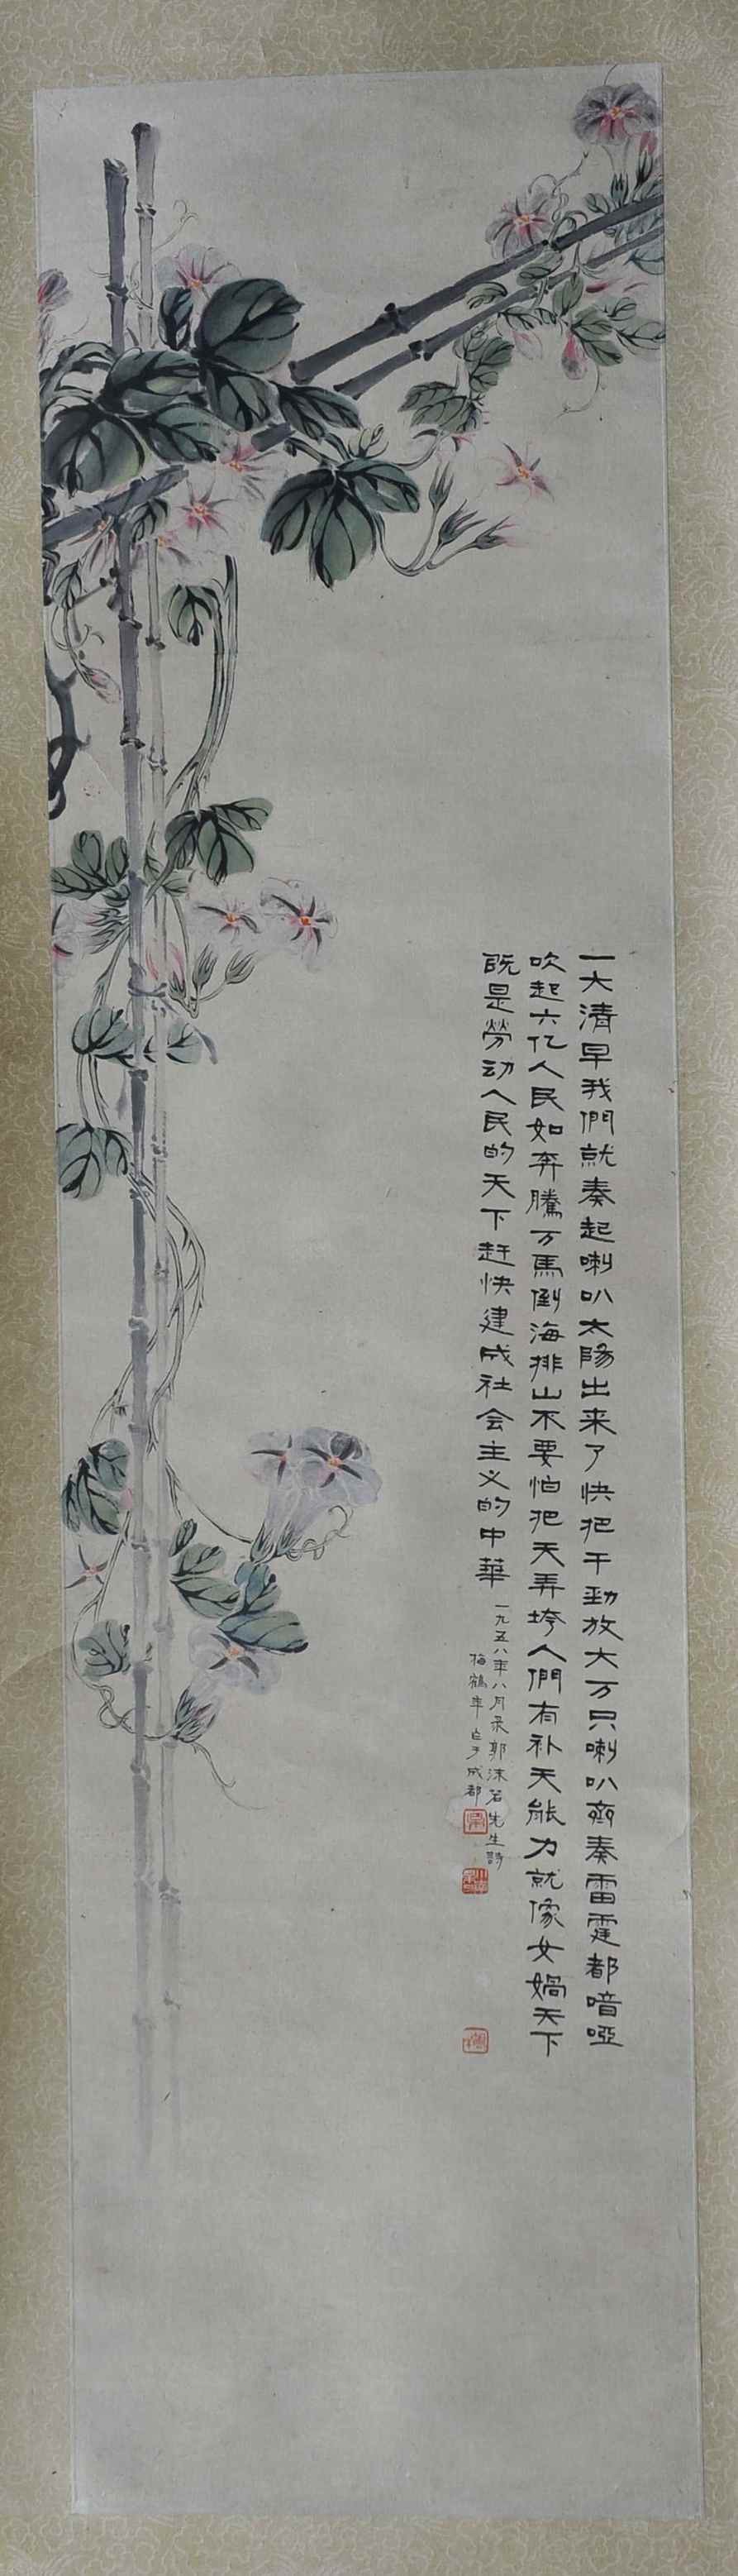 一大清早我們就奏起喇叭太陽出来了快把干勁放大万只喇叭齊奏雷霆都喑啞
吹起六亿人民如奔騰万馬倒海排山不要怕把天弄垮人們有补天能力就像女媧天下
既是勞动人民的天下赶快建成社会主义的中華
一九五八年八月录郭沫若先生詩
梅鶴年 于成都